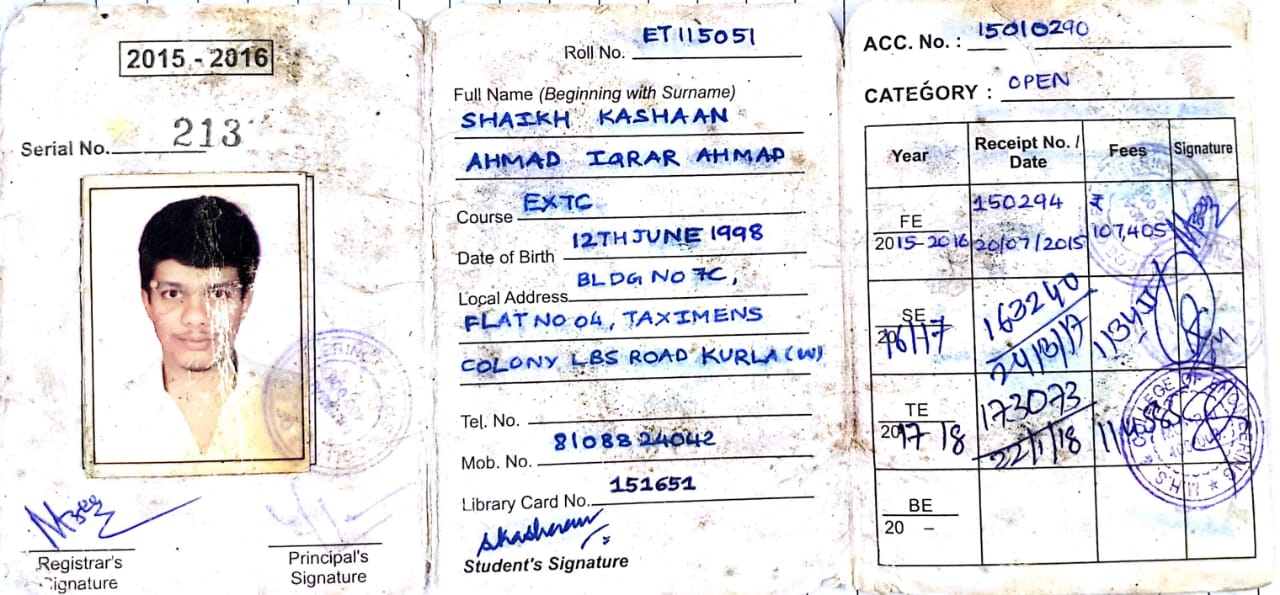 2015 - 2016
Serial No. 213
Registrar's
Signature
Principal's
Signature
Roll No. ET115051
Full Name (Beginning with Surname)
SHAIKH KASHAAN
AHMAD IQRAR AHMAD
Course EXTC
Date of Birth 12TH JUNE 1998
Local Address BLDG NO 7C,
FLAT NO 04, TAXIMENS
COLONY LBS ROAD KURLA (W)
Tel. No.
Mob. No. 8108824042
Library Card No. 151651
Student's Signature
ACC. No. : 15010290
CATEGORY : OPEN
Year Receipt No. / Date Fees Signature
FE 2015-2016 150294 20/07/2015 ₹ 107,405
SE 2016/17 163240
TE 2017 18 173073 22/1/18
BE 20 –
COLLEGE OF ENGINEERING
M.H.S